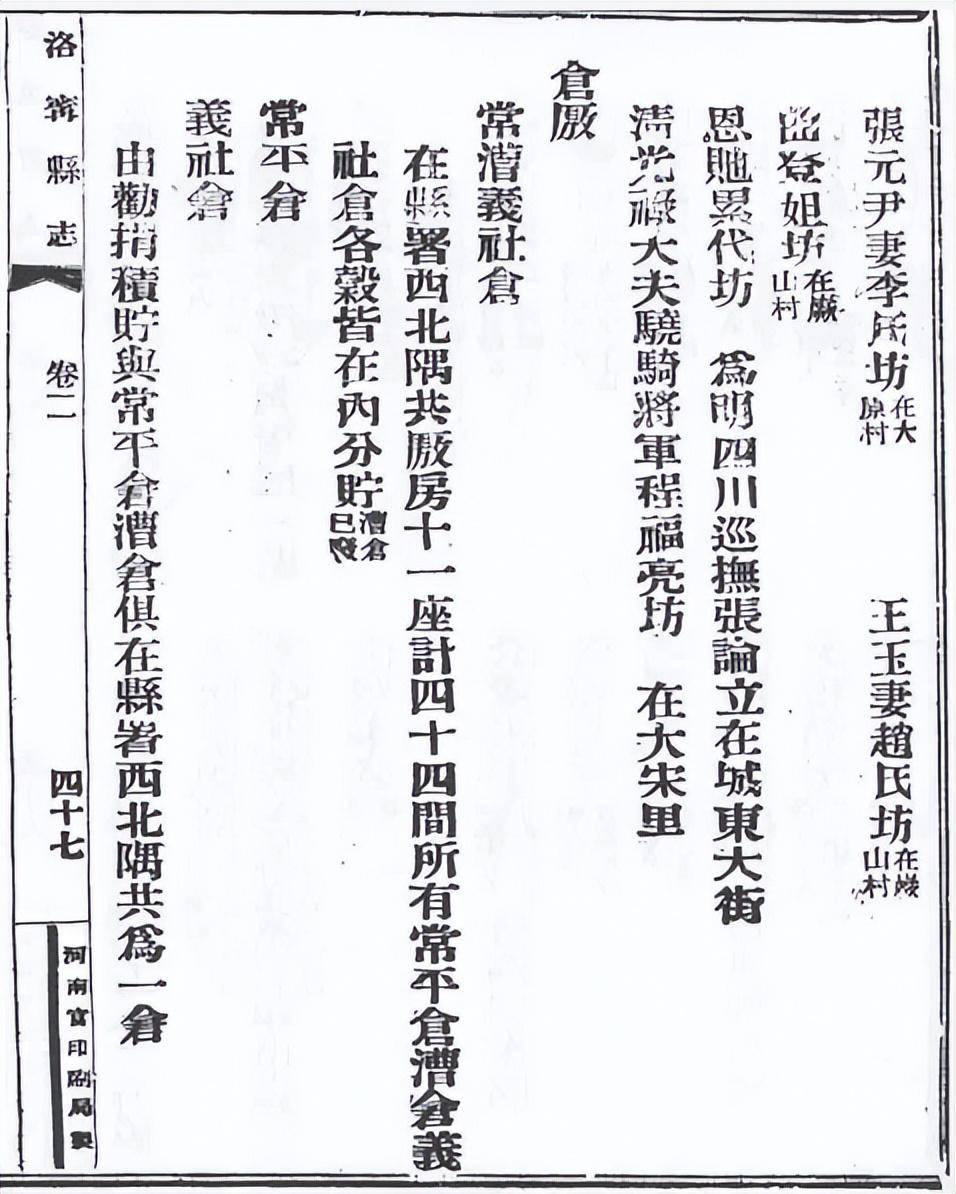 張元尹妻李氏坊 在大原村 王玉妻趙氏坊 在巖山村
姐坊 在巖山村
恩貤累代坊 爲明四川巡撫張論立在城東大街
清光祿大夫驍騎將軍程福亮坊 在大宋里
倉厫
常漕義社倉
在縣署西北隅共厫房十一座計四十四間所有常平倉漕倉義
社倉各穀皆在內分貯 漕倉已廢
常平倉
義社倉
由勸捐積貯與常平倉漕倉俱在縣署西北隅共爲一倉
洛寧縣志 卷二 四十七 河南官印刷局製